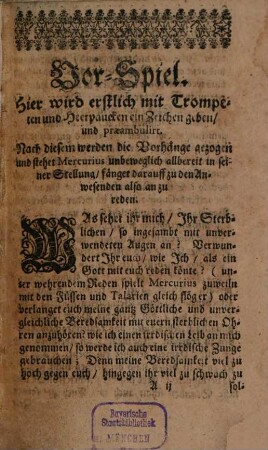 Vor-Spiel.
Hier wird erstlich mit Trompe-
ten und Heerpaucken ein Zeichen geben/
und præambulirt.
Nach diesem werden die Vorhänge gezogen
und stehet Mercurius unbeweglich allbereit in sei-
ner Stellung/ fänget darauff zu den An-
wesenden also an zu
reden:
WAs sehet ihr mich/ Ihr Sterb-
lichen/ so ingesambt mit unver-
wendeten Augen an? Verwun-
dert Ihr euch/ wie Ich/ als ein
Gott mit euch reden könte? (un-
ter wehrendem Reden spielt Mercurius zuweiln
mit den Füssen und Talarien gleich flöger) oder
verlanget euch meine gäntz Göttliche und unver-
gleichliche Beredsamkeit mit euern sterblichen Oh-
ren anzuhören? wie ich einen irdischen Leib an mich
genommen/ so werde ich auch eine irrdische Zunge
gebrauchen; Denn meine Beredsamkeit viel zu
hoch gegen euch/ hingegen ihr viel zu schwach zu
A ij sol-
Bayerische
Staatsbibliothek
MÜNCHEN